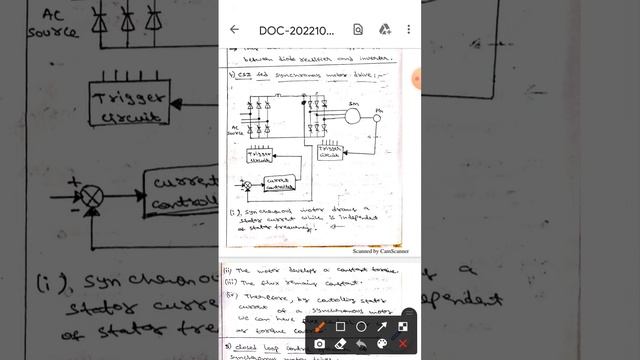 DOC-202210...
between diode rectifier and inverter.
CSI fed synchronous motor drive:-
SM
AC
source
Trigger
circuit
Trigger
circuit
current
controller
(i), synchronous motor draws a
stator current which is independent
of stator frequency.
Scanned by CamScanner
(ii) The motor develops a constant torque.
(iii) The flux remains constant.
(iv) Therefore, by controlling stator
current of a synchronous motor
we can have
as torque
5) closed loop
synchronous motor
AC
source
Trigger
circuit
current
(i), synchronous
stator
of stator
a